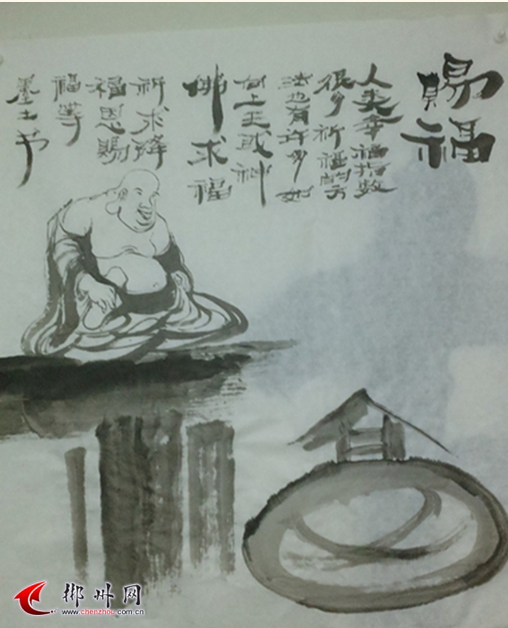 賜福
人类幸福指数
很多祈福的方
法也有许多如
向上天或神
佛求福
祈求降
福恩賜
福等
郴州网
www.chenzhou.com.cn